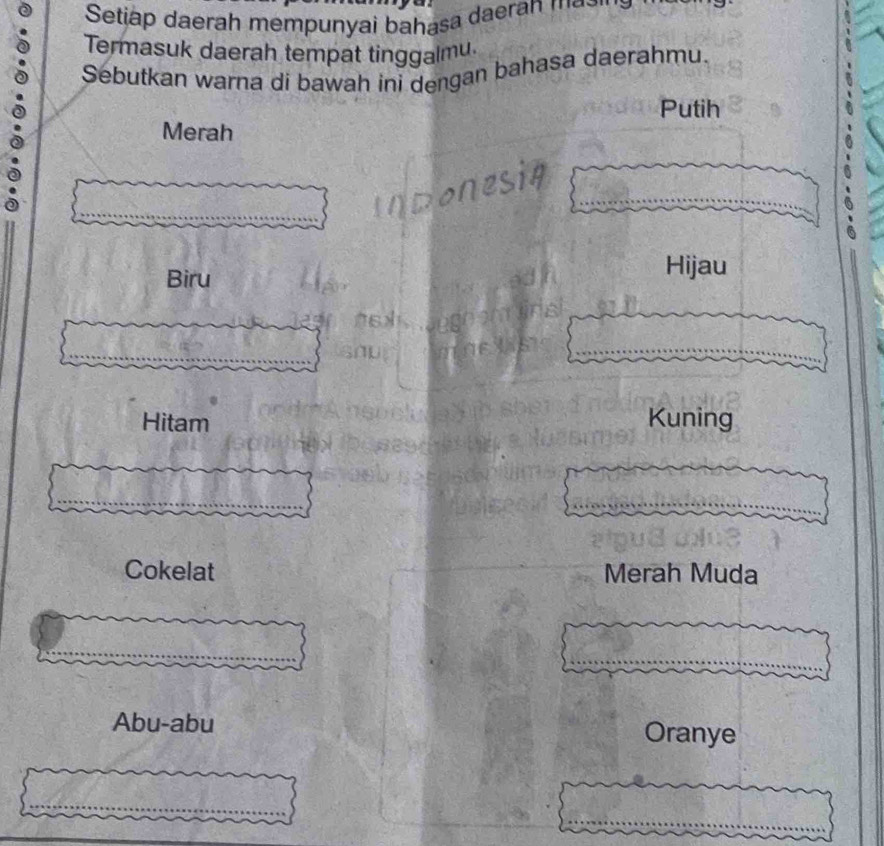 Setiap daerah mempunyai bahasa daerah
Termasuk daerah tempat tinggalmu.
Sebutkan warna di bawah ini dengan bahasa daerahmu.
Merah
Putih
INDONESIA
Biru
Hijau
Hitam
Kuning
Cokelat
Merah Muda
Abu-abu
Oranye